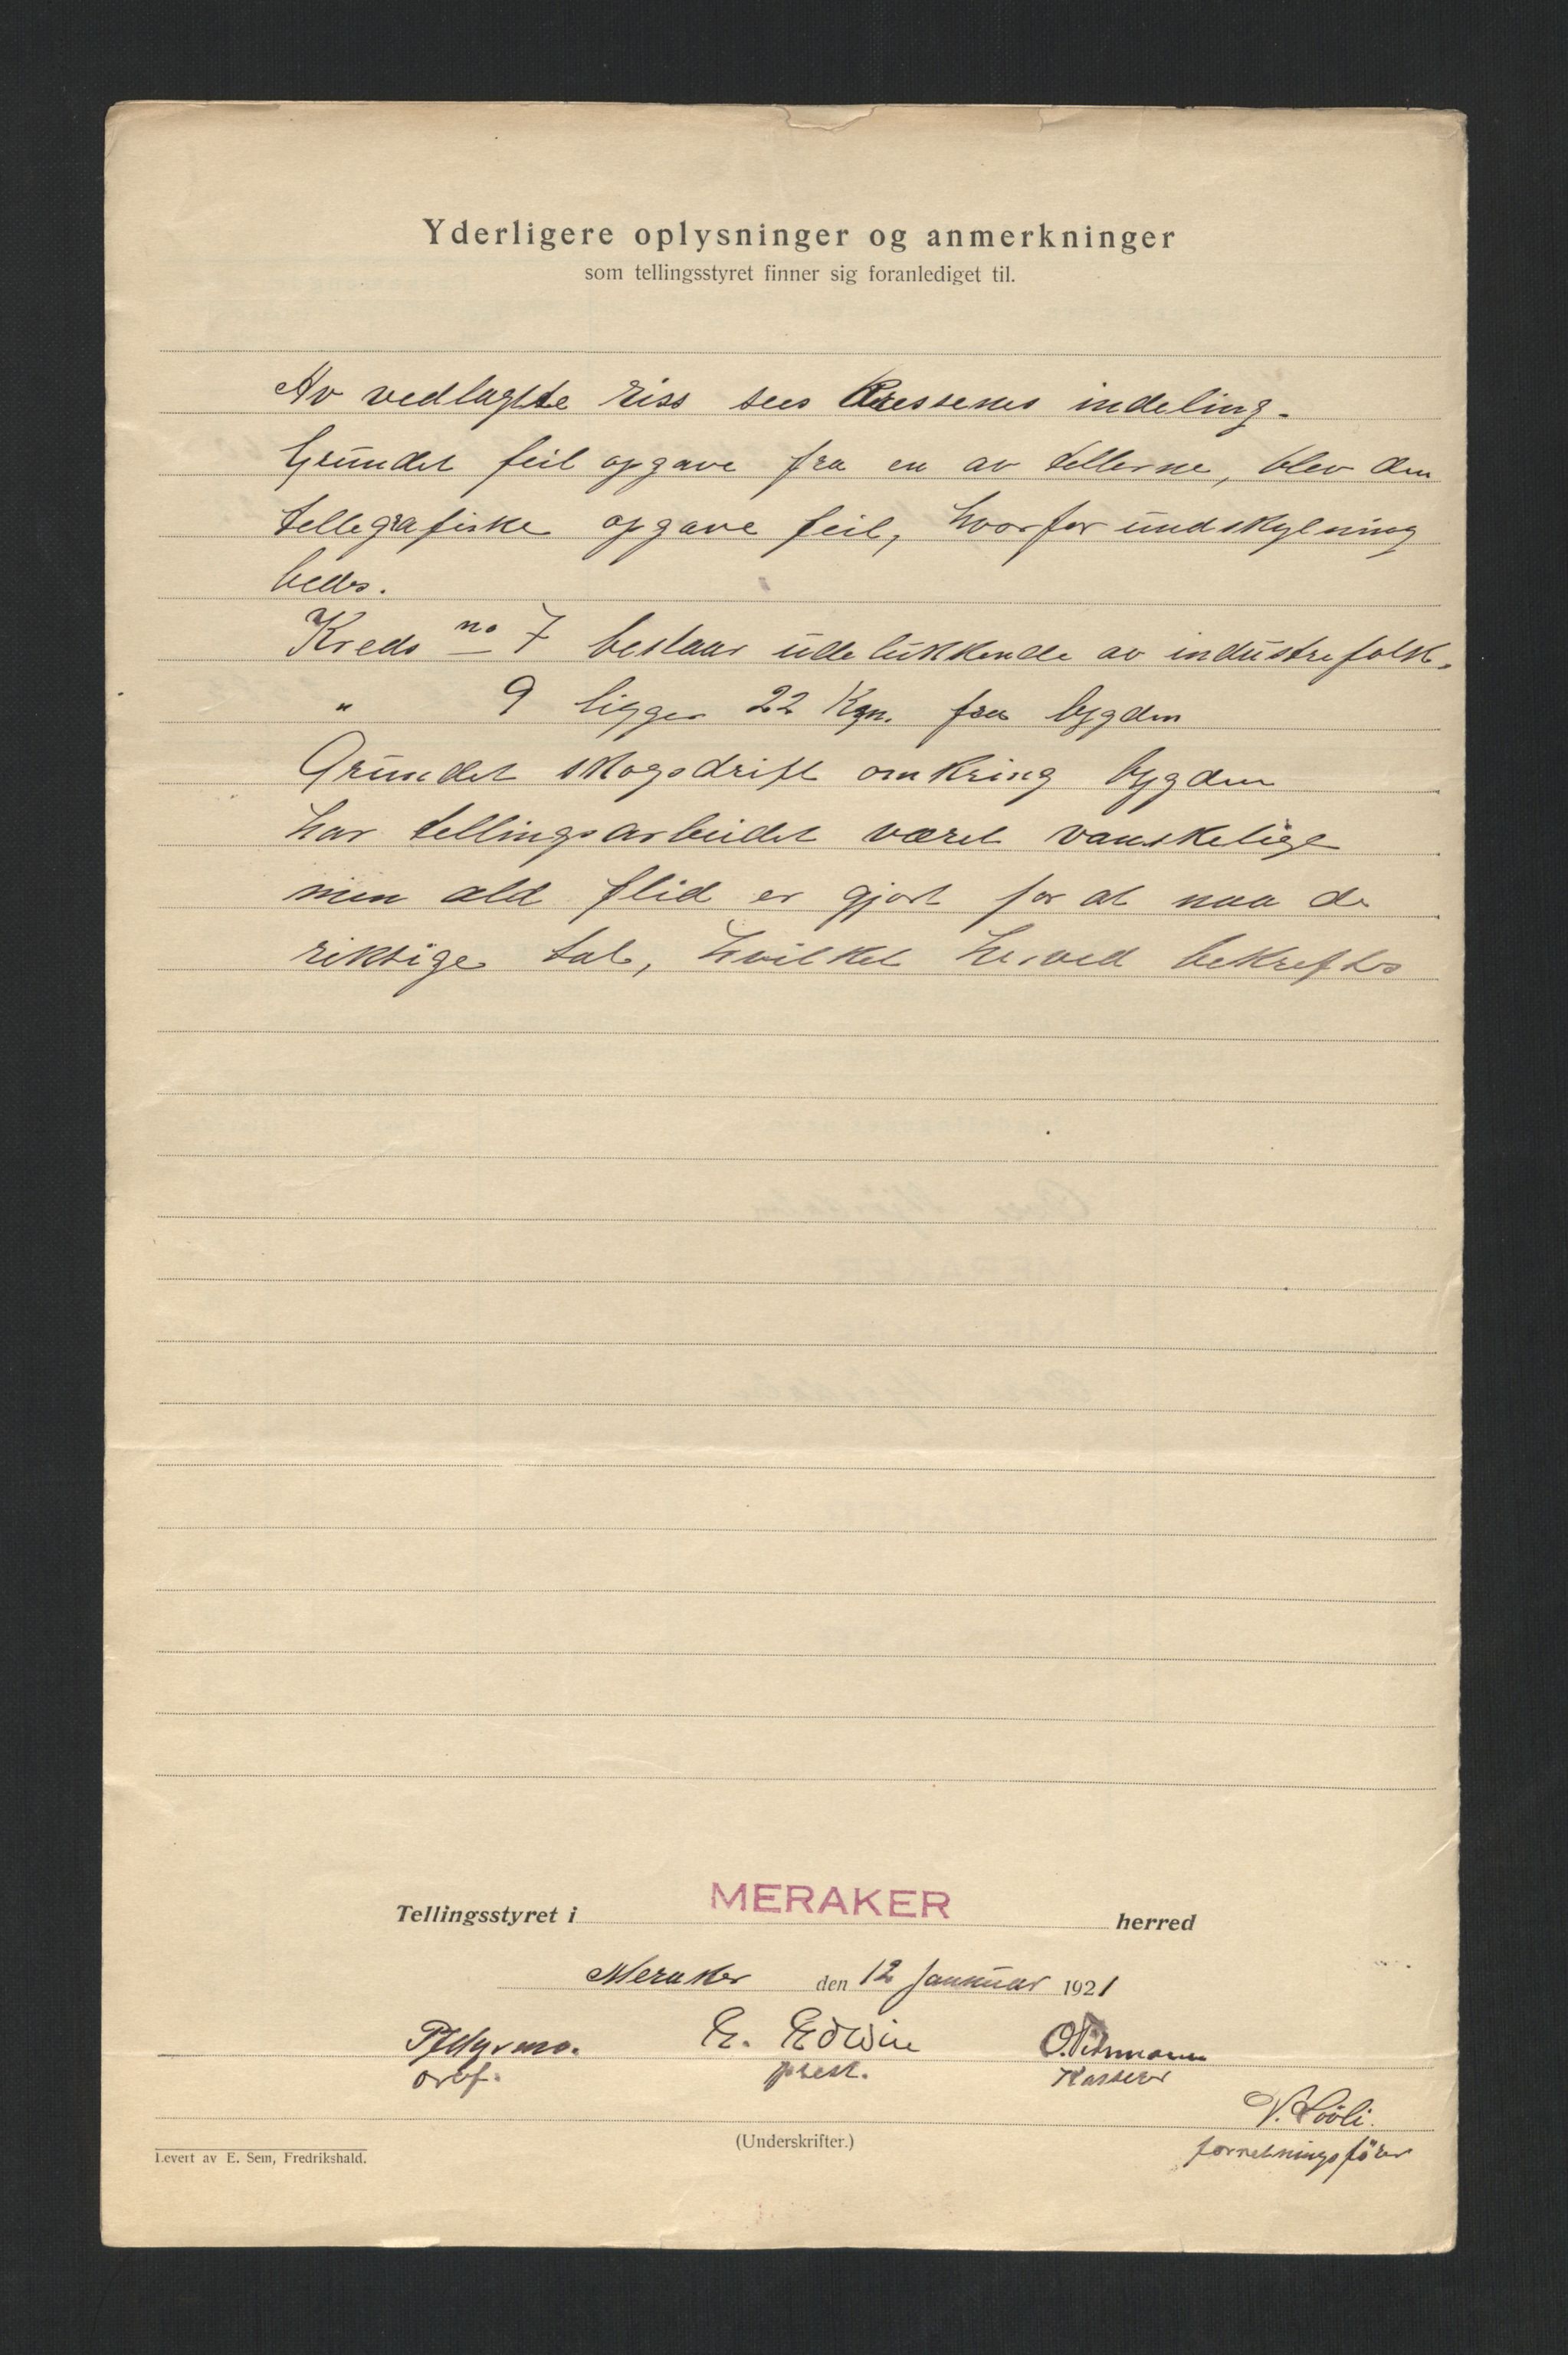 Yderligere oplysninger og anmerkninger
som tellingsstyret finner sig foranlediget til.
Av vedlagte riss sees Kressenes indeling.
Grundet feil opgave fra en av tellerne, blev den
tellegrafiske opgave feil, hvorfor undskylning
bedes.
Kreds no 7 bestaar udelukkende av industrefolk.
" 9 ligger 22 Km. fra bygden
Grundet skogsdrift omkring bygden
har tellingsarbeidet været vanskelige
men ald flid er gjort for at naa de
riktige tal, hvilket herved bekreftes
Tellingsstyret i MERAKER herred
Meraker den 12 Januar 1921
E. Edwin
ordf. prest. Kasserer
forretningsförer
(Underskrifter.)
Levert av E. Sem, Fredrikshald.